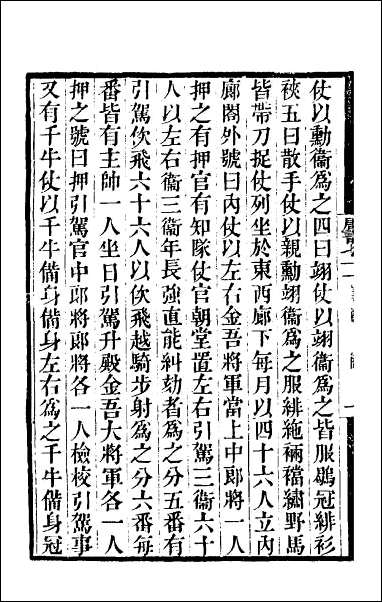 仗以勳衞爲之四曰翊仗以翊衞爲之皆服鶡冠緋衫
裌五曰散手仗以親勳翊衞爲之服緋絁裲襠繡野馬
皆帶刀捉仗列坐於東西廊下每月以四十六人立內
廊閤外號曰內仗以左右金吾將軍當上中郎將一人
押之有押官有知隊仗官朝堂置左右引駕三衞六十
人以左右衞三衞年長強直能糾劾者爲之分五番有
引駕佽飛六十六人以佽飛越騎步射爲之分六番每
番皆有主帥一人坐日引駕升殿金吾大將軍各一人
押之號曰押引駕官中郎將郎將各一人檢校引駕事
又有千牛仗以千牛備身備身左右爲之千牛備身冠